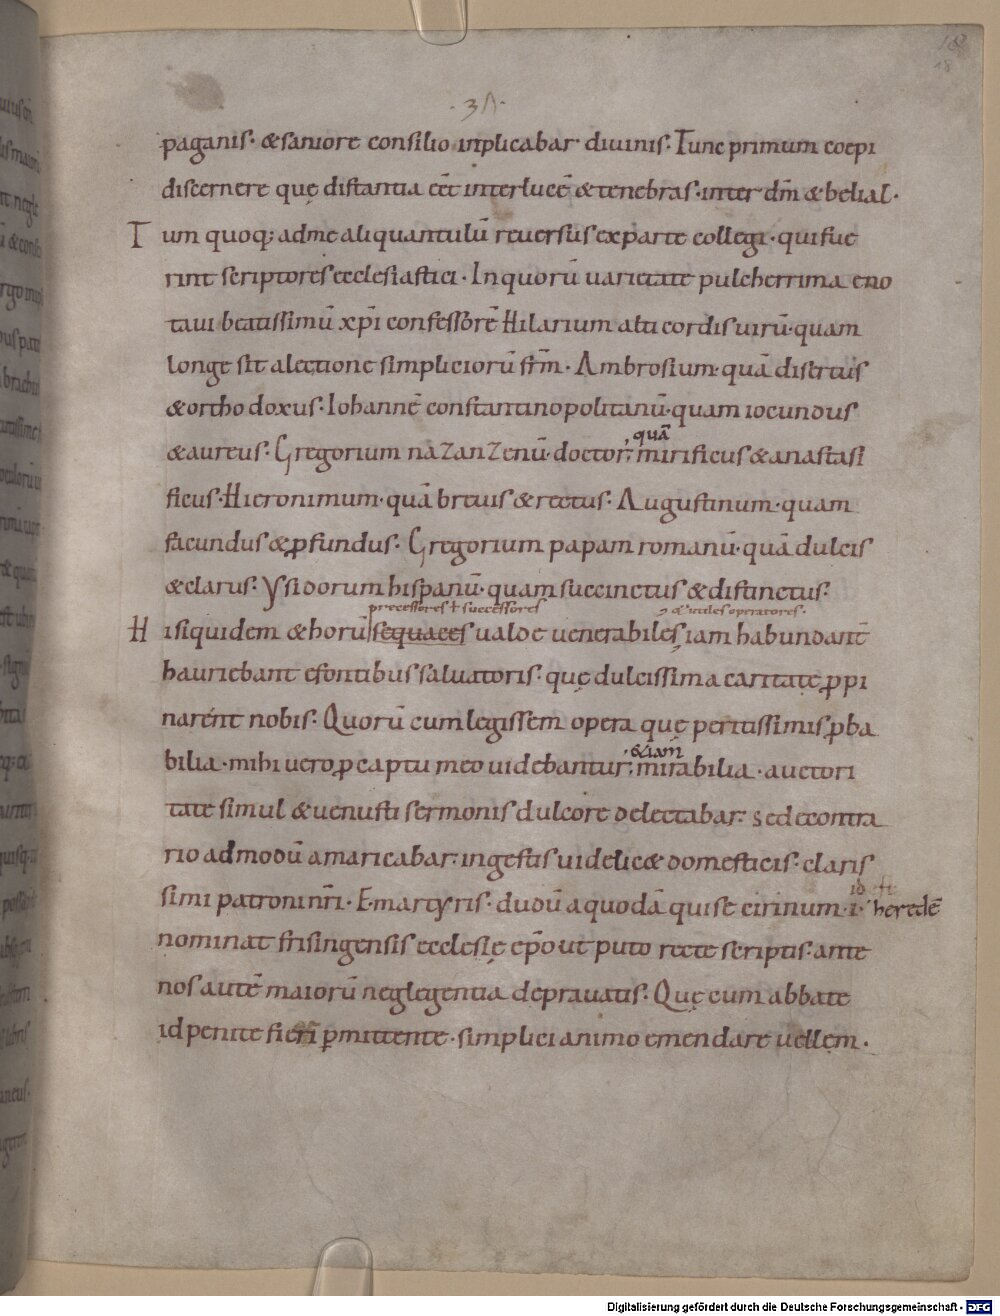 18
18
· 3Λ ·
paganis· &saniore consilio inplicabar diuinis· Tunc primum coepi
discernere quę distantia eēt inter lucē & tenebras· inter dm̄ & belial·
Tum quoq; adme aliquantulū reuersus exparte collegi· qui fue
rint scriptores ecclesiastici· In quorū uarietate pulcherrima eno
taui beatissimū xp̄i confessorē Hilarium alti cordis uirū· quam
longe sit alectione simpliciorū frm̄· Ambrosium· quā disertus
&orthodoxus· Iohannē constantinopolitanū· quam iocundus
quā
&aureus· Gregorium naZanZenū· doctor, mirificus & anastasi
ficus· Hieronimum· quā breuis & rectus· Augustinum· quam
facundus & ꝓfundus· Gregorium papam romanū· quā dulcis
&clarus· Ysidorum hispanū· quam succinctus & distinctus·
precessores ł successores & utiles operatores·
Hi siquidem & horū sequaces ualde uenerabiles, iam habundant̄
hauriebant efontibus saluatoris· quę dulcissima caritatę ꝓpi
narent nobis· Quorū cum legissem opera quę peritissimis ꝓba
&iam
bilia· mihi uero ꝓ captu meo uidebantur, mirabilia· auctori
tate simul & uenusti sermonis dulcore delectabar· sed econtra
rio admodū amaricabar· ingestis uidelic& domesticis· claris
id est
simi patroni nr̄i· E·martyris· dudū a quodā qui se cirinum ·i· heredē
nominat frisingensis ecclesię ep̄o ut puto recte scriptis· ante
nos autē maiorū neglegentia deprauatis· Quę cum abbate
id penite fieri ꝑmittente· simplici animo emendare uellem·
Digitalisierung gefördert durch die Deutsche Forschungsgemeinschaft - DFG